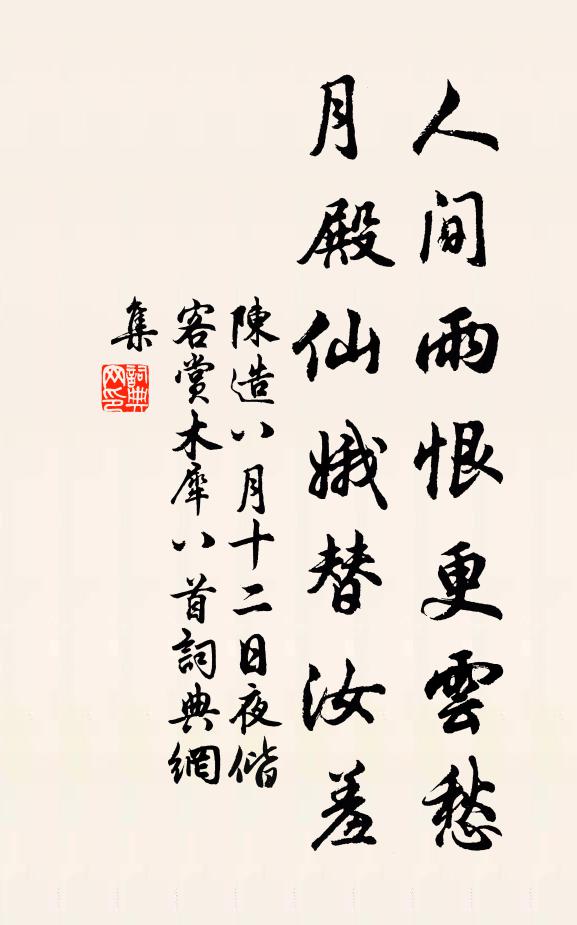 人間雨恨更雲愁
月殿仙娥替汝羞
陳造八月十二日夜偕
客賞木犀八首詞典網
集
詞典
网印